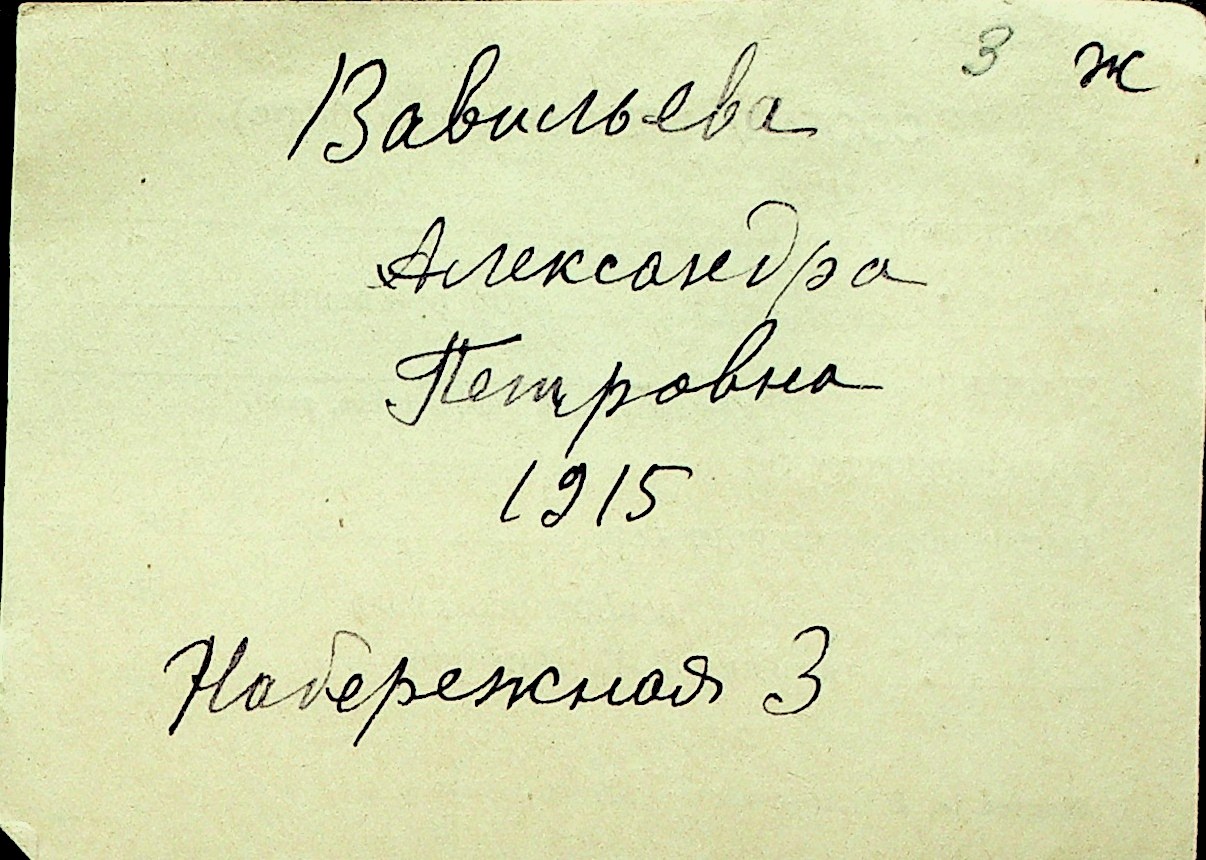 3 ж
Вавильева
Александра
Петровна
1915
Набережная 3